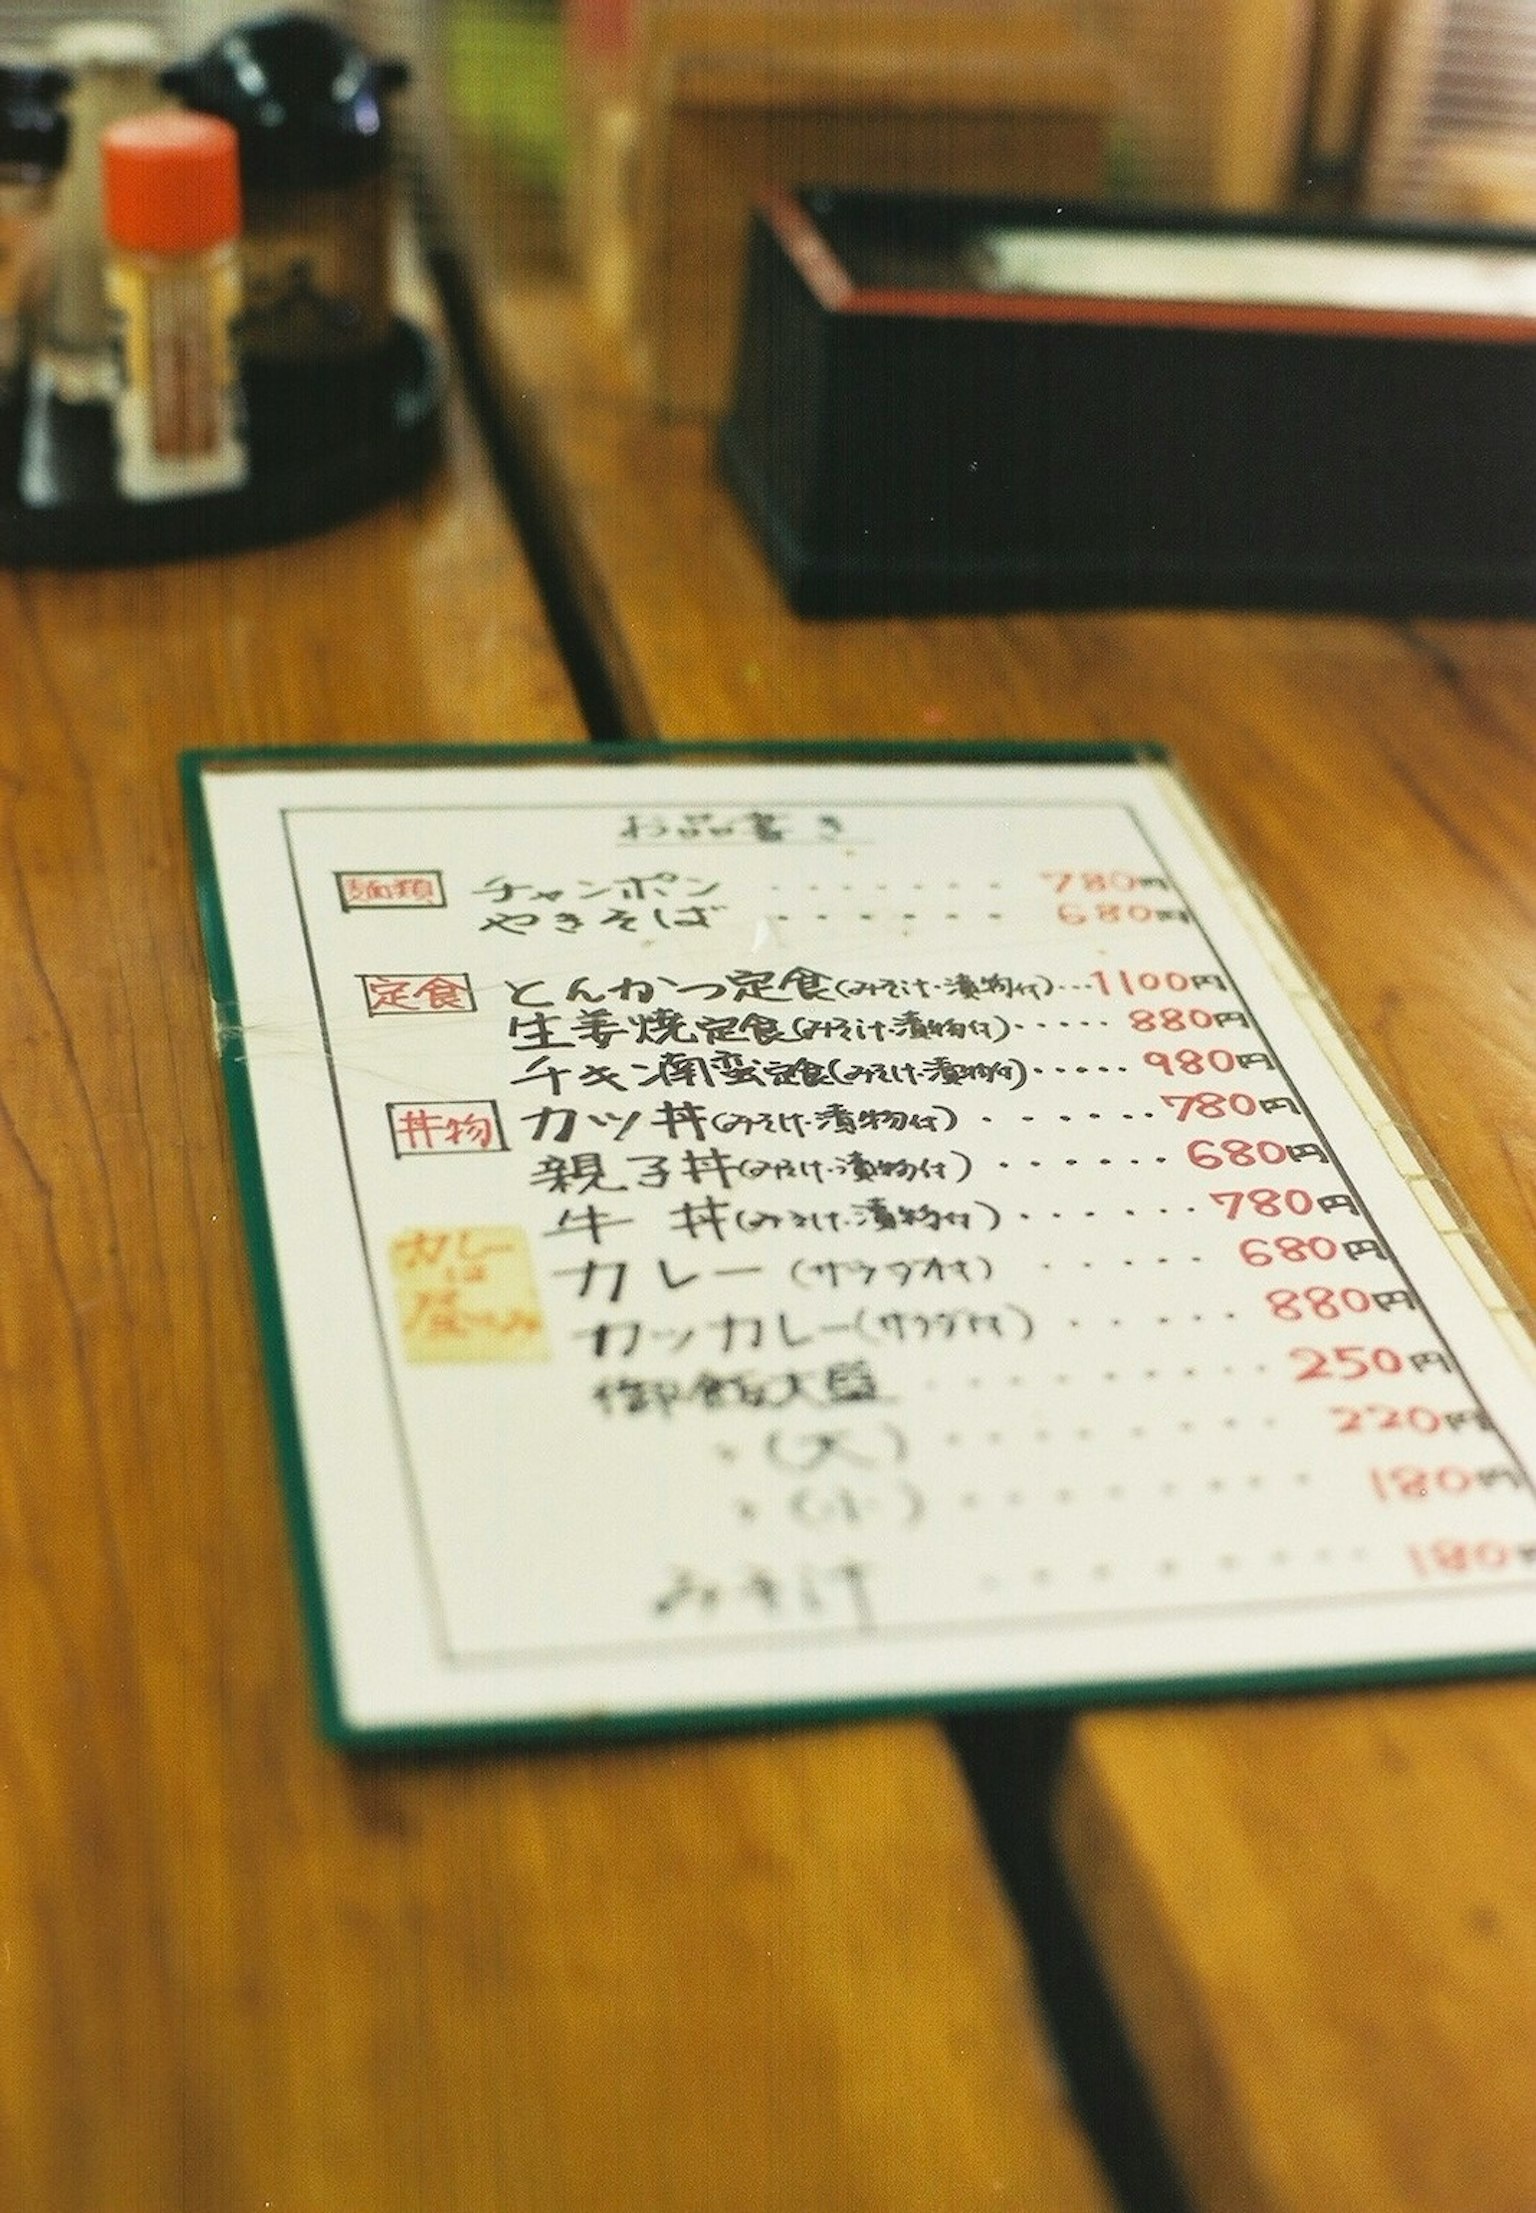 お品書き
麺類 チャンポン ・・・・・・・ 780円
やきそば ・・・・・・・ 680円
定食 とんかつ定食(みそ汁・漬物付)・・・1100円
生姜焼定食(みそ汁・漬物付)・・・・・ 880円
チキン南蛮定食(みそ汁・漬物付)・・・・・ 980円
丼物 カツ丼(みそ汁・漬物付)・・・・・・780円
親子丼(みそ汁・漬物付)・・・・・・680円
牛 丼(みそ汁・漬物付)・・・・・・780円
カレーは昼のみ
カレー(サラダ付)・・・・・680円
カツカレー(サラダ付)・・・・・880円
御飯大盛・・・・・・・・・250円
〃(大)・・・・・・・・220円
〃(小)・・・・・・・・180円
みそ汁 ・・・・・・・・・180円